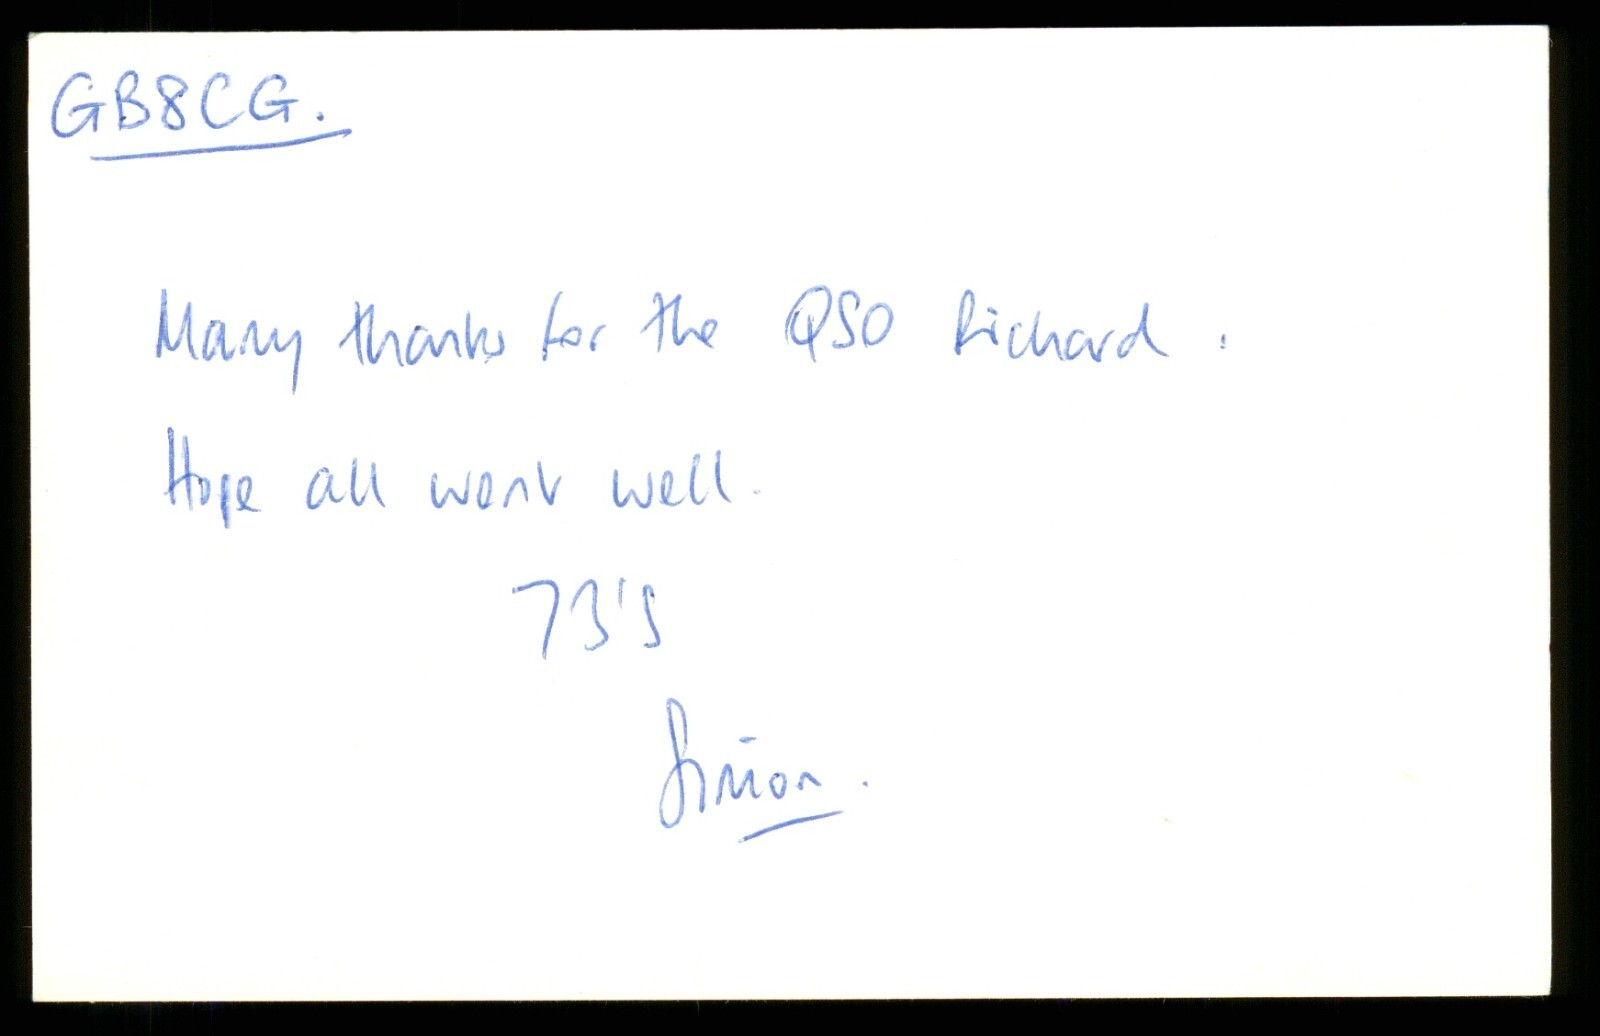 GB8CG.
Many thanks for the QSO Richard.
Hope all went well.
73's
Simon.